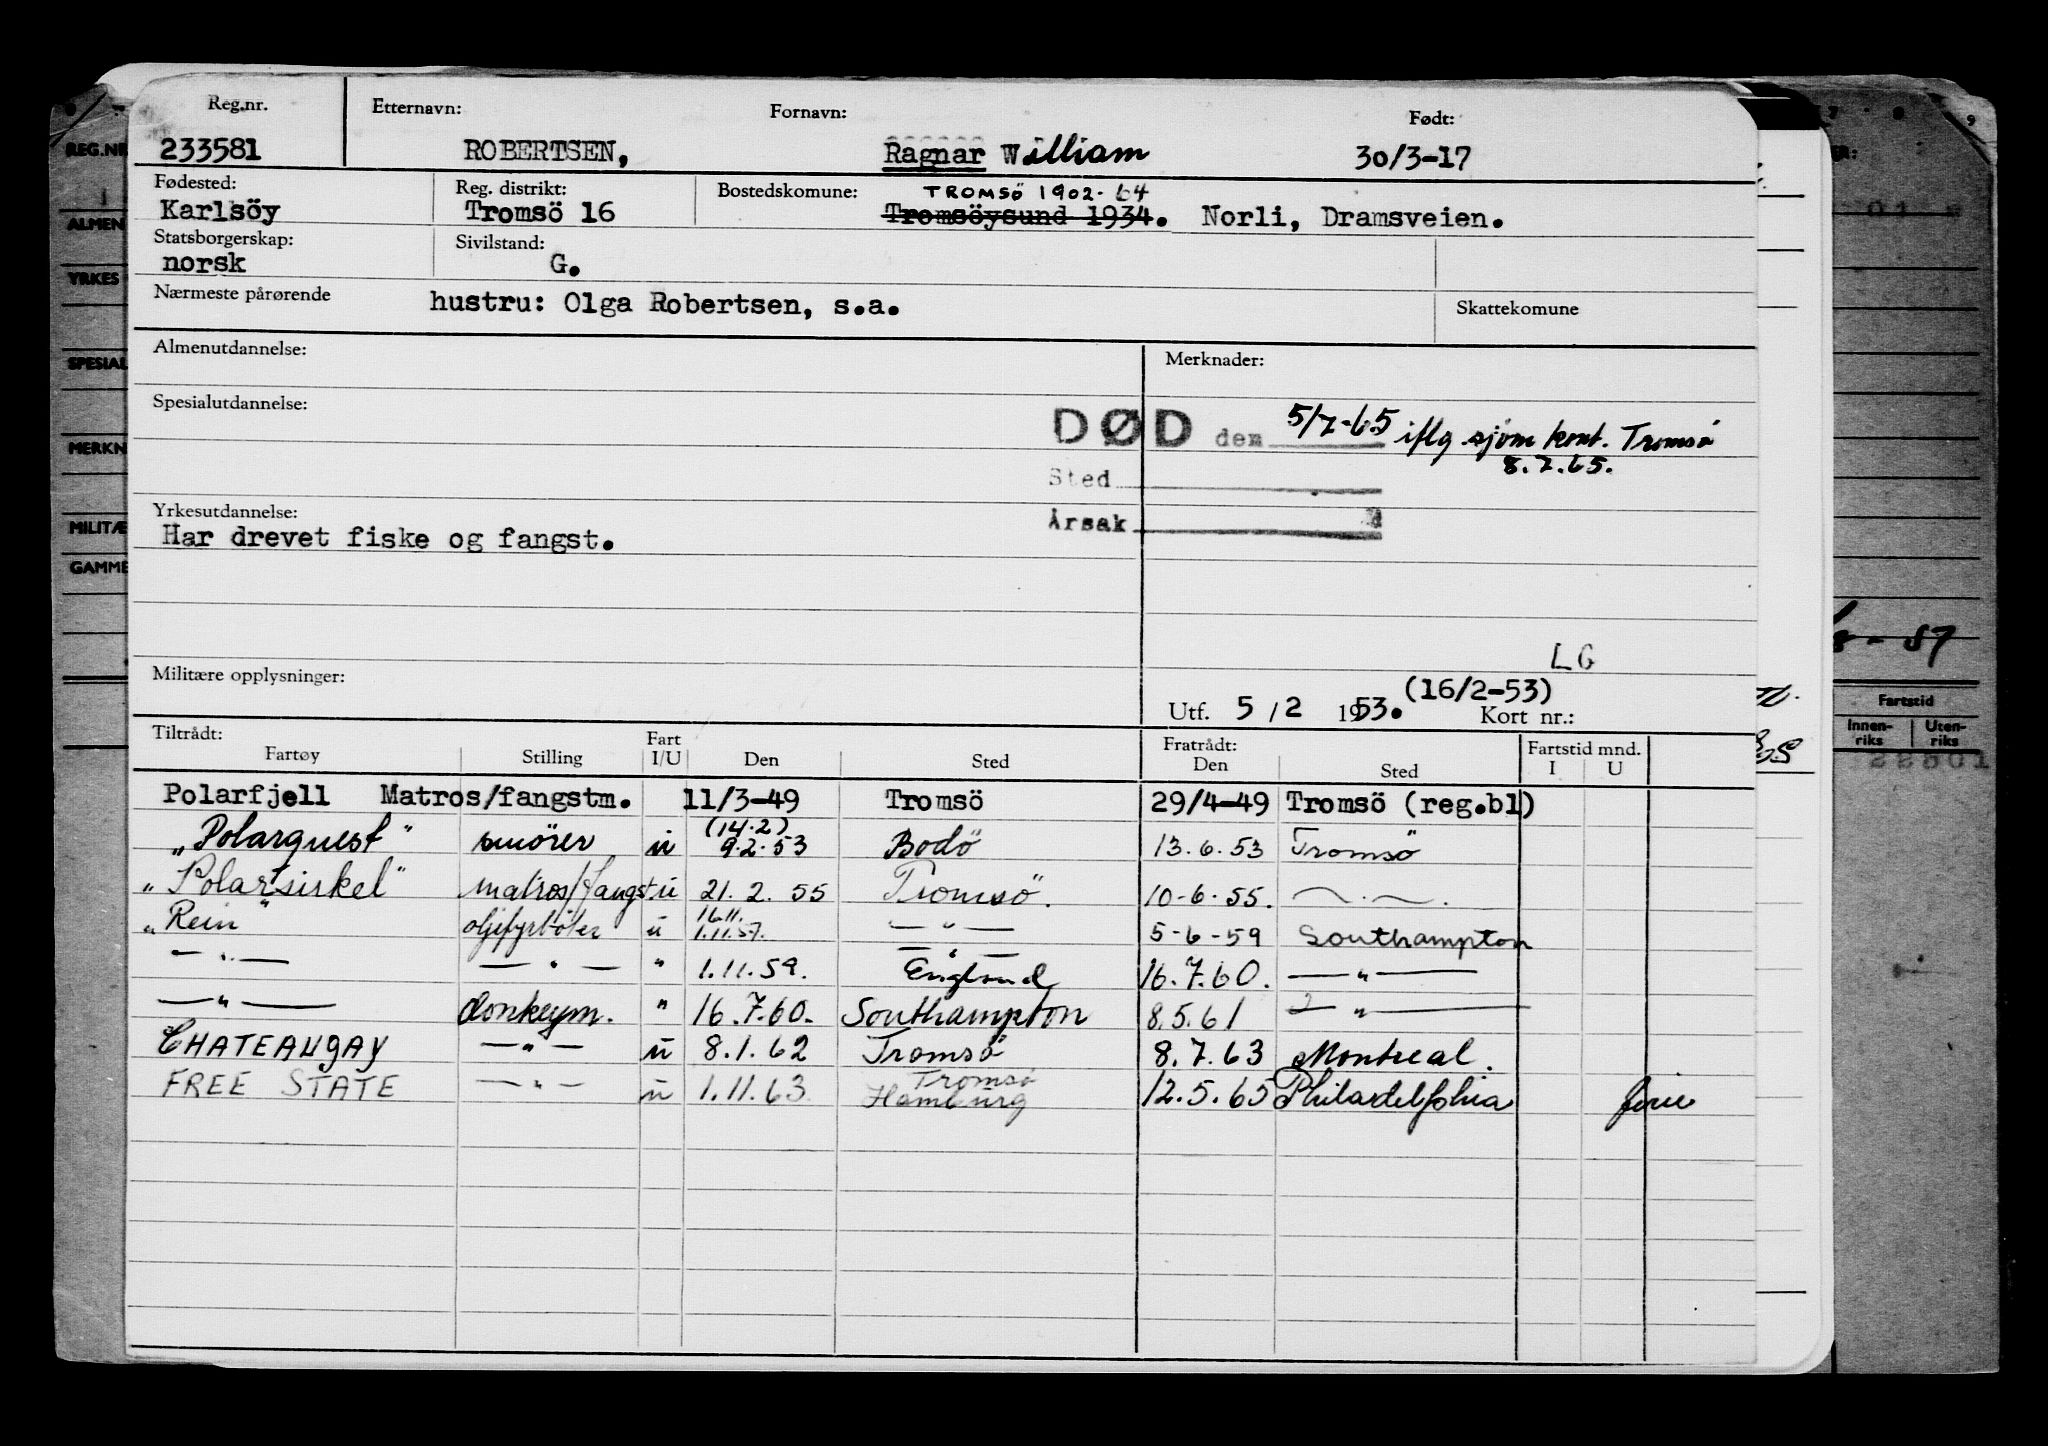 Reg.nr. Etternavn: Fornavn: Født:
233581 ROBERTSEN, Ragnar William 30/3-17
Fødested: Reg. distrikt: Bostedskomune: TROMSÖ 1902-64
Karlsöy Tromsö 16 Tromsöysund 1934. Norli, Dramsveien.
Statsborgerskap: Sivilstand:
norsk G.
Nærmeste pårørende hustru: Olga Robertsen, s.a. Skattekomune
Almenutdannelse: Merknader:
Spesialutdannelse:
DØD den 5/7-65 iflg sjøm kont. Tromsö
8.7.65.
Sted
Årsak
Yrkesutdannelse:
Har drevet fiske og fangst.
LG
Militære opplysninger:
(16/2-53)
Utf. 5/2 1953. Kort nr.:
Tiltrådt: Fratrådt: Fartstid mnd.
Fartøy Stilling Fart I/U Den Sted Den Sted I U
Polarfjell Matros/fangstm. 11/3-49 Tromsö 29/4-49 Tromsö (reg.bl)
(14.2)
"Polarquest" smörer u 9.2.53 Bodö 13.6.53 Tromsö
"Polarsirkel" matros/fangst. u 21.2.55 Tromsö. 10-6-55. — " —.
16.11.
"Rein" oljefyrböter u 1.11.57. — " — 5-6-59 Southampton
— " —
— " — — " — " 1.11.59. England 16.7.60. — " —
— " — donkeym. " 16.7.60. Southampton 8.5.61 — " —
CHATEAUGAY — " — u 8.1.62 Tromsö 8.7.63 Montreal.
Tromsö
FREE STATE — " — u 1.11.63 Hamburg 12.5.65 Philadelphia ferie
REG.NR
ALMEN
YRKES
SPESIAL
MERKN
MILITÆ
GAMME
Fartstid
Innenriks Utenriks